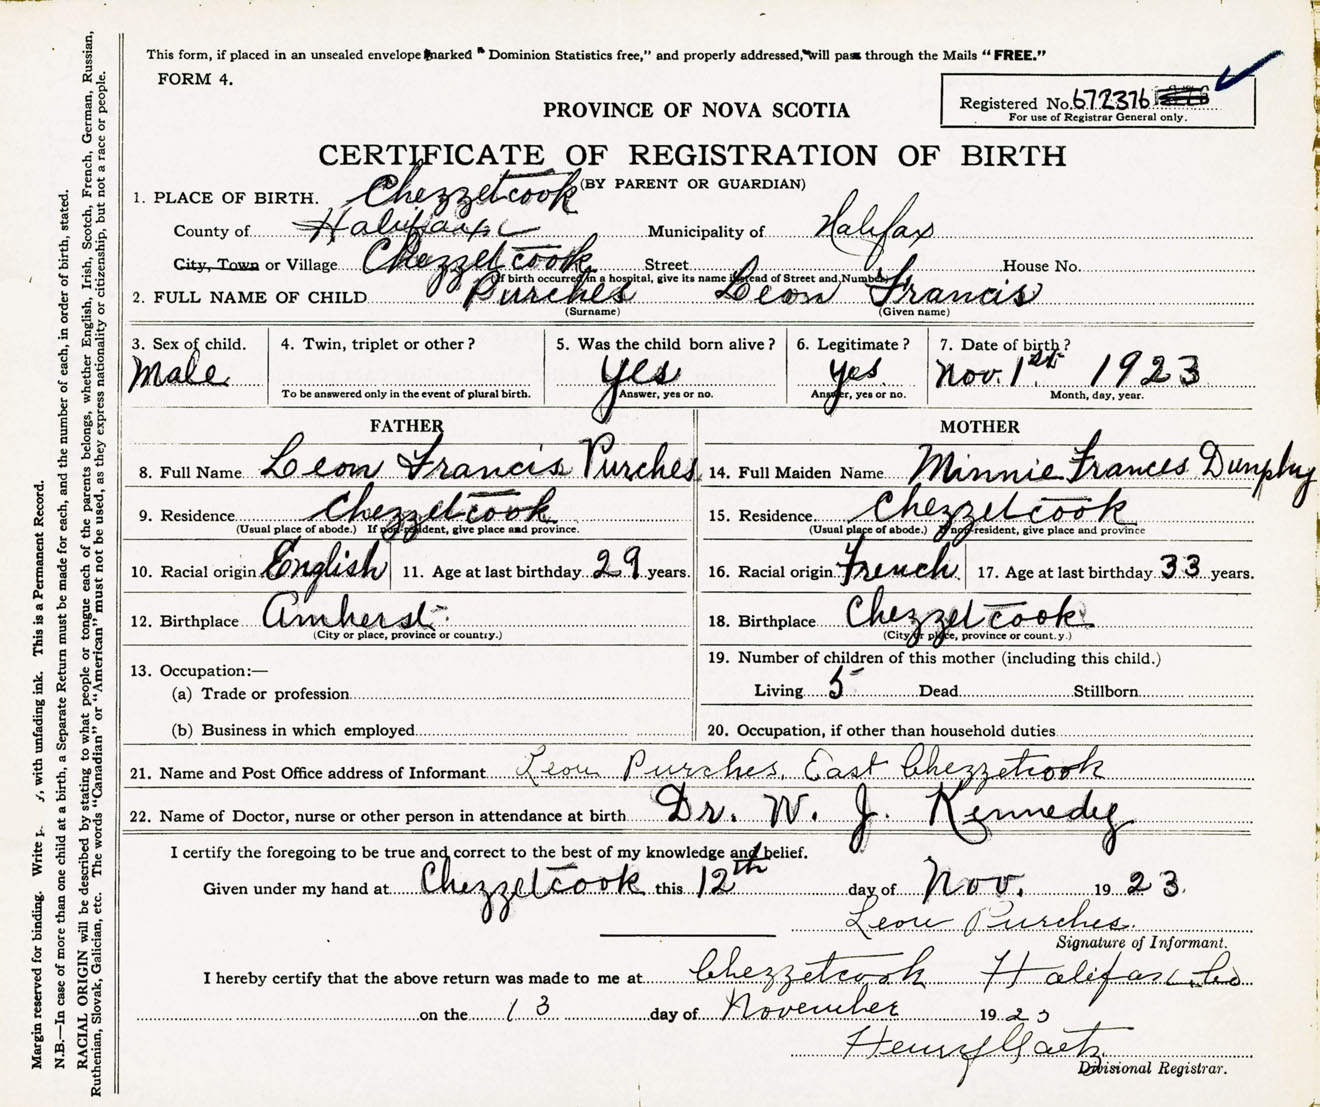 This form, if placed in an unsealed envelope marked "Dominion Statistics free," and properly addressed, will pass through the Mails "FREE."
FORM 4.
Registered No. 672376
For use of Registrar General only.
PROVINCE OF NOVA SCOTIA
CERTIFICATE OF REGISTRATION OF BIRTH
(BY PARENT OR GUARDIAN)
1. PLACE OF BIRTH. Chezzetcook
County of Halifax Municipality of Halifax
City, Town or Village Chezzetcook Street House No.
(If birth occurred in a hospital, give its name instead of Street and Number)
2. FULL NAME OF CHILD Purches Leon Francis
(Surname) (Given name)
3. Sex of child. 4. Twin, triplet or other? 5. Was the child born alive? 6. Legitimate? 7. Date of birth?
Male yes yes Nov. 1st 1923
To be answered only in the event of plural birth. Answer, yes or no. Answer, yes or no. Month, day, year.
FATHER
8. Full Name Leon Francis Purches
9. Residence Chezzetcook
(Usual place of abode.) If non-resident, give place and province.
10. Racial origin English 11. Age at last birthday 29 years.
12. Birthplace Amherst
(City or place, province or country.)
13. Occupation:—
(a) Trade or profession
(b) Business in which employed
MOTHER
14. Full Maiden Name Minnie Frances Dunphy
15. Residence Chezzetcook
(Usual place of abode.) If non-resident, give place and province
16. Racial origin French 17. Age at last birthday 33 years.
18. Birthplace Chezzetcook
(City or place, province or country.)
19. Number of children of this mother (including this child.)
Living 5 Dead Stillborn
20. Occupation, if other than household duties
21. Name and Post Office address of Informant Leon Purches, East Chezzetcook
22. Name of Doctor, nurse or other person in attendance at birth Dr. W. J. Kennedy
I certify the foregoing to be true and correct to the best of my knowledge and belief.
Given under my hand at Chezzetcook this 12th day of Nov. 1923.
Leon Purches.
Signature of Informant.
I hereby certify that the above return was made to me at Chezzetcook Halifax Co
on the 13 day of November 1923
Henry Gaetz
Divisional Registrar.
Margin reserved for binding. Write with unfading ink. This is a Permanent Record.
N.B.—In case of more than one child at a birth, a Separate Return must be made for each, and the number of each, in order of birth, stated.
RACIAL ORIGIN will be described by stating to what people or tongue each of the parents belongs, whether English, Irish, Scotch, French, German, Russian,
Ruthenian, Slovak, Galician, etc. The words "Canadian" or "American" must not be used, as they express nationality or citizenship, but not a race or people.